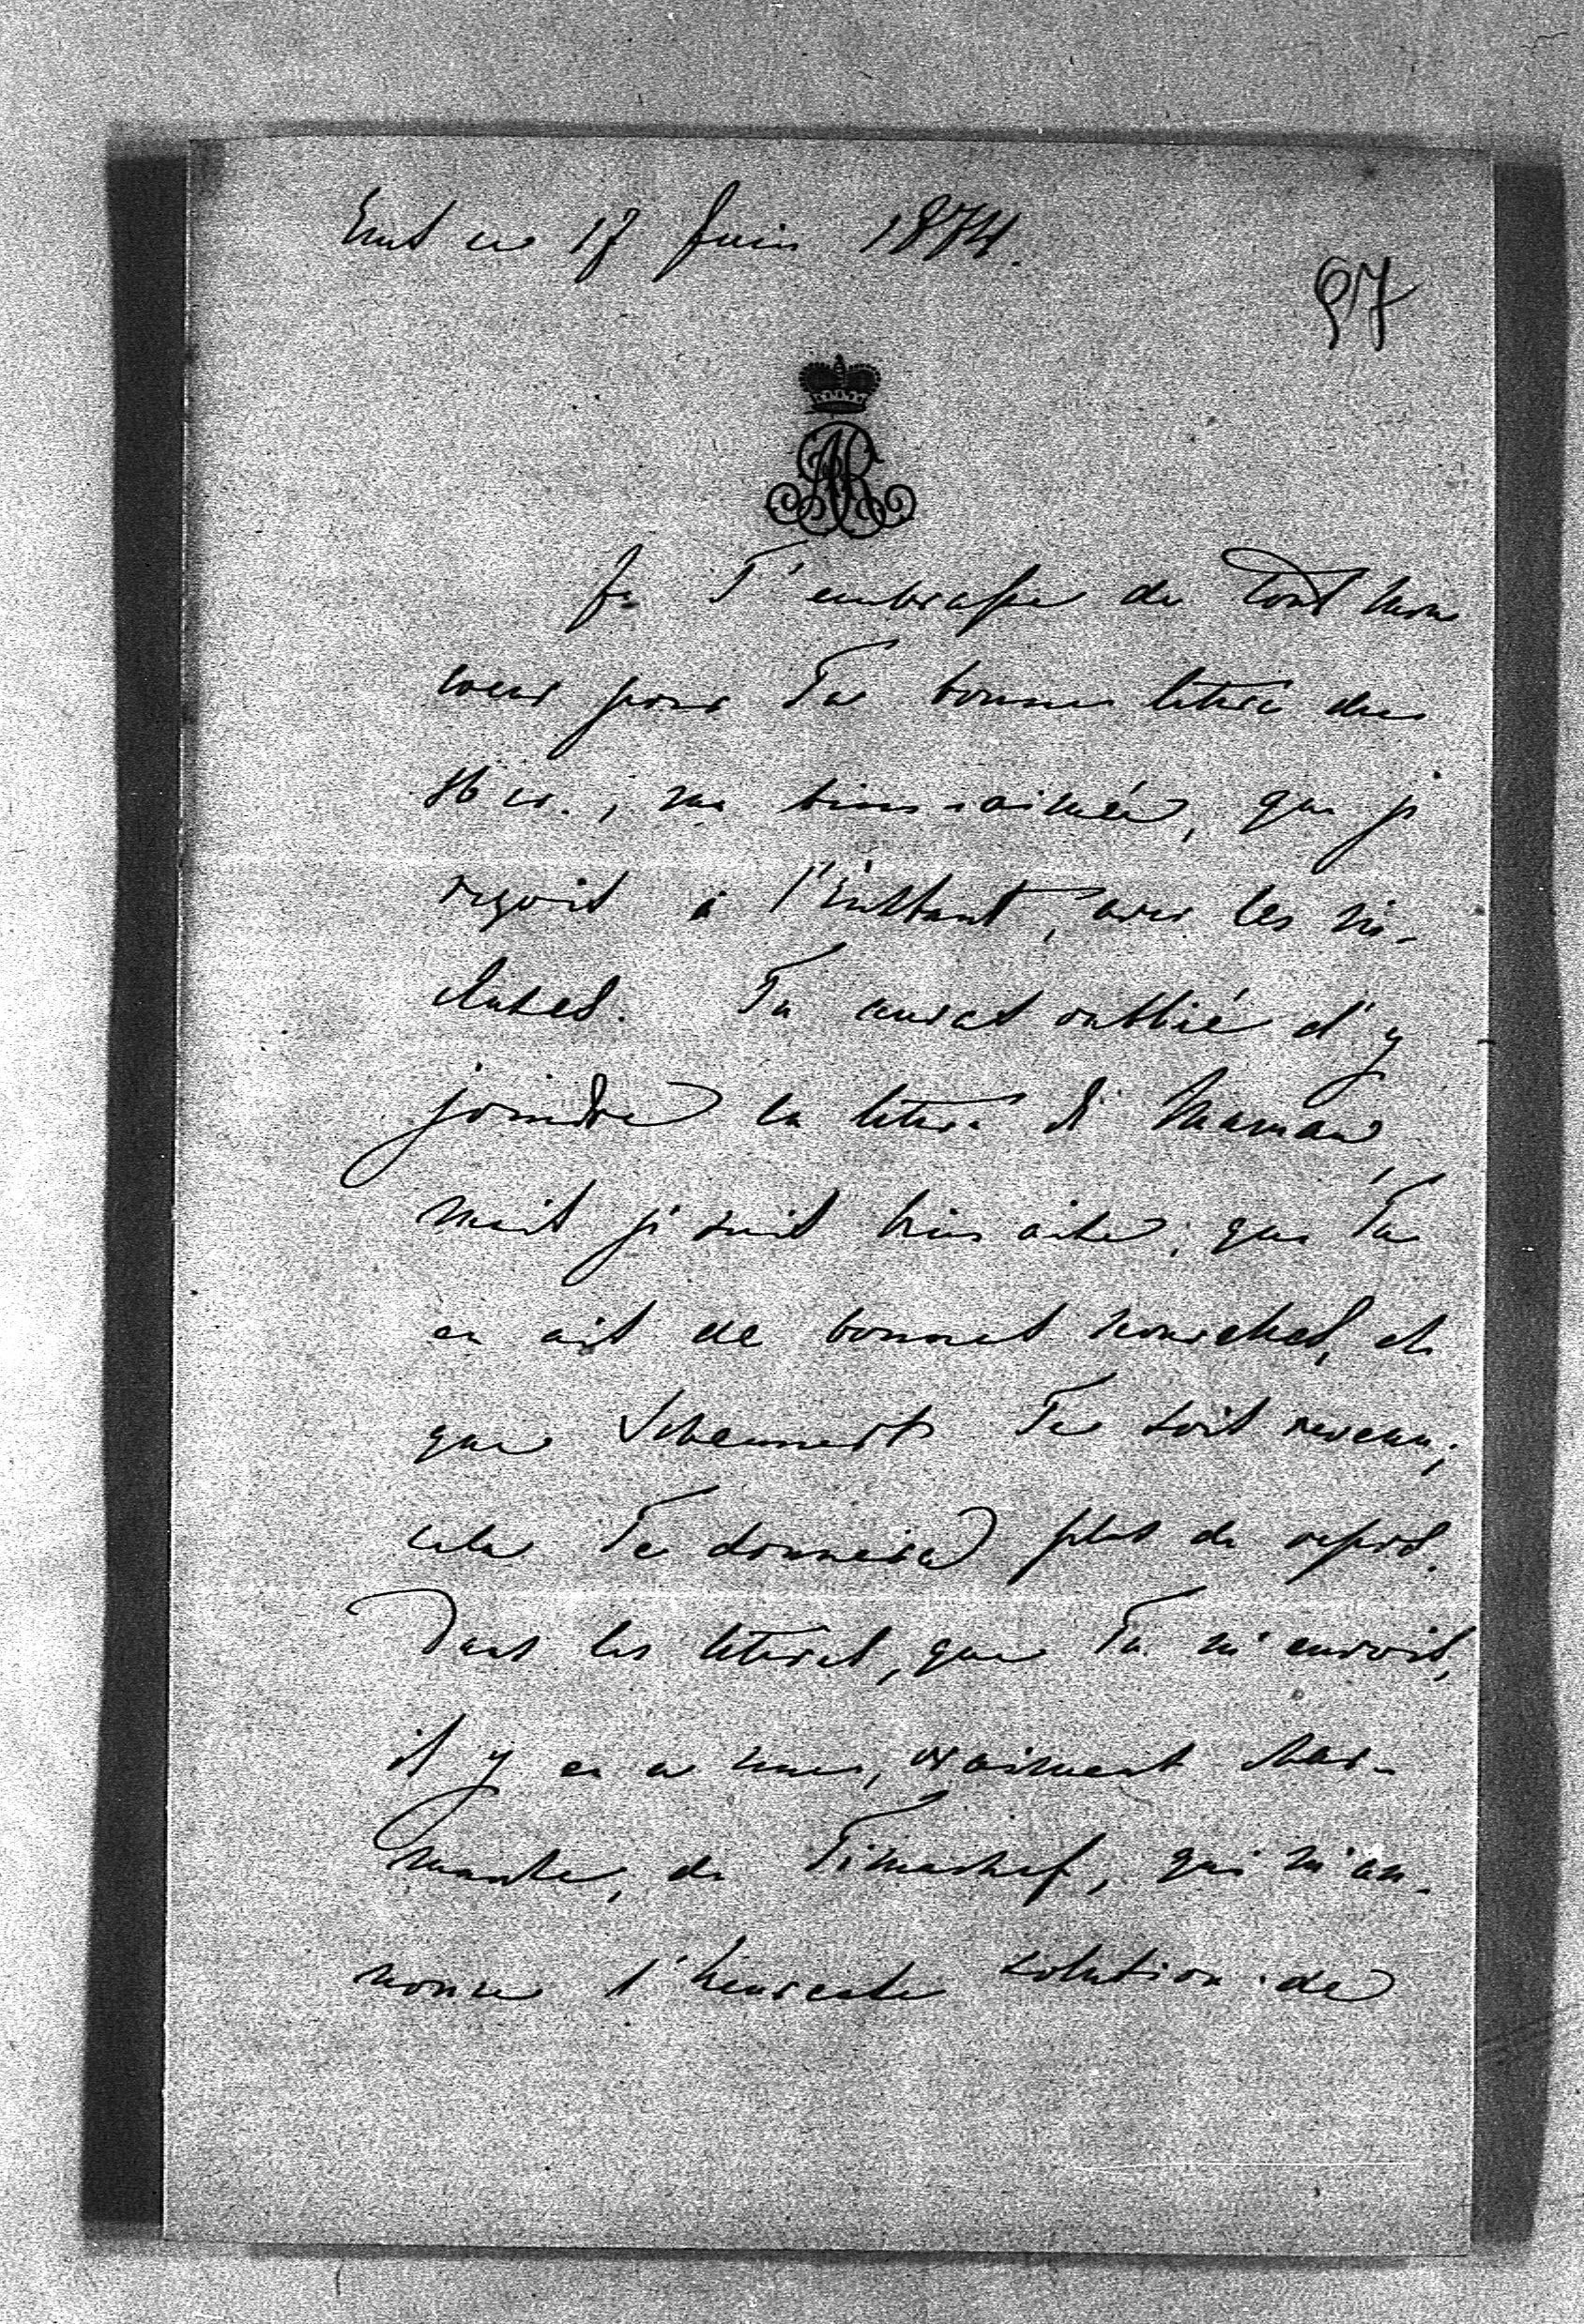 Ems ce 17 Juin 1874.
97
AR
Je T'embrasse de tout mon
coeur pour Ta bonne lettre du
ma bien-aimée, que je
reçois à l'instant, avec les in-
cluses. Tu auras oublié d'y
joindre la lettre d' Maman,
mais je suis bien aise, que Tu
en ais de bonnes nouvelles, et
que Te soit revenu,
cela Te donnera plus de repos.
Dans les lettres, que Tu m'envois,
il y en a une, vraiment char-
mante, de Timashef, qui m'an-
nonce l'heureuse solution de